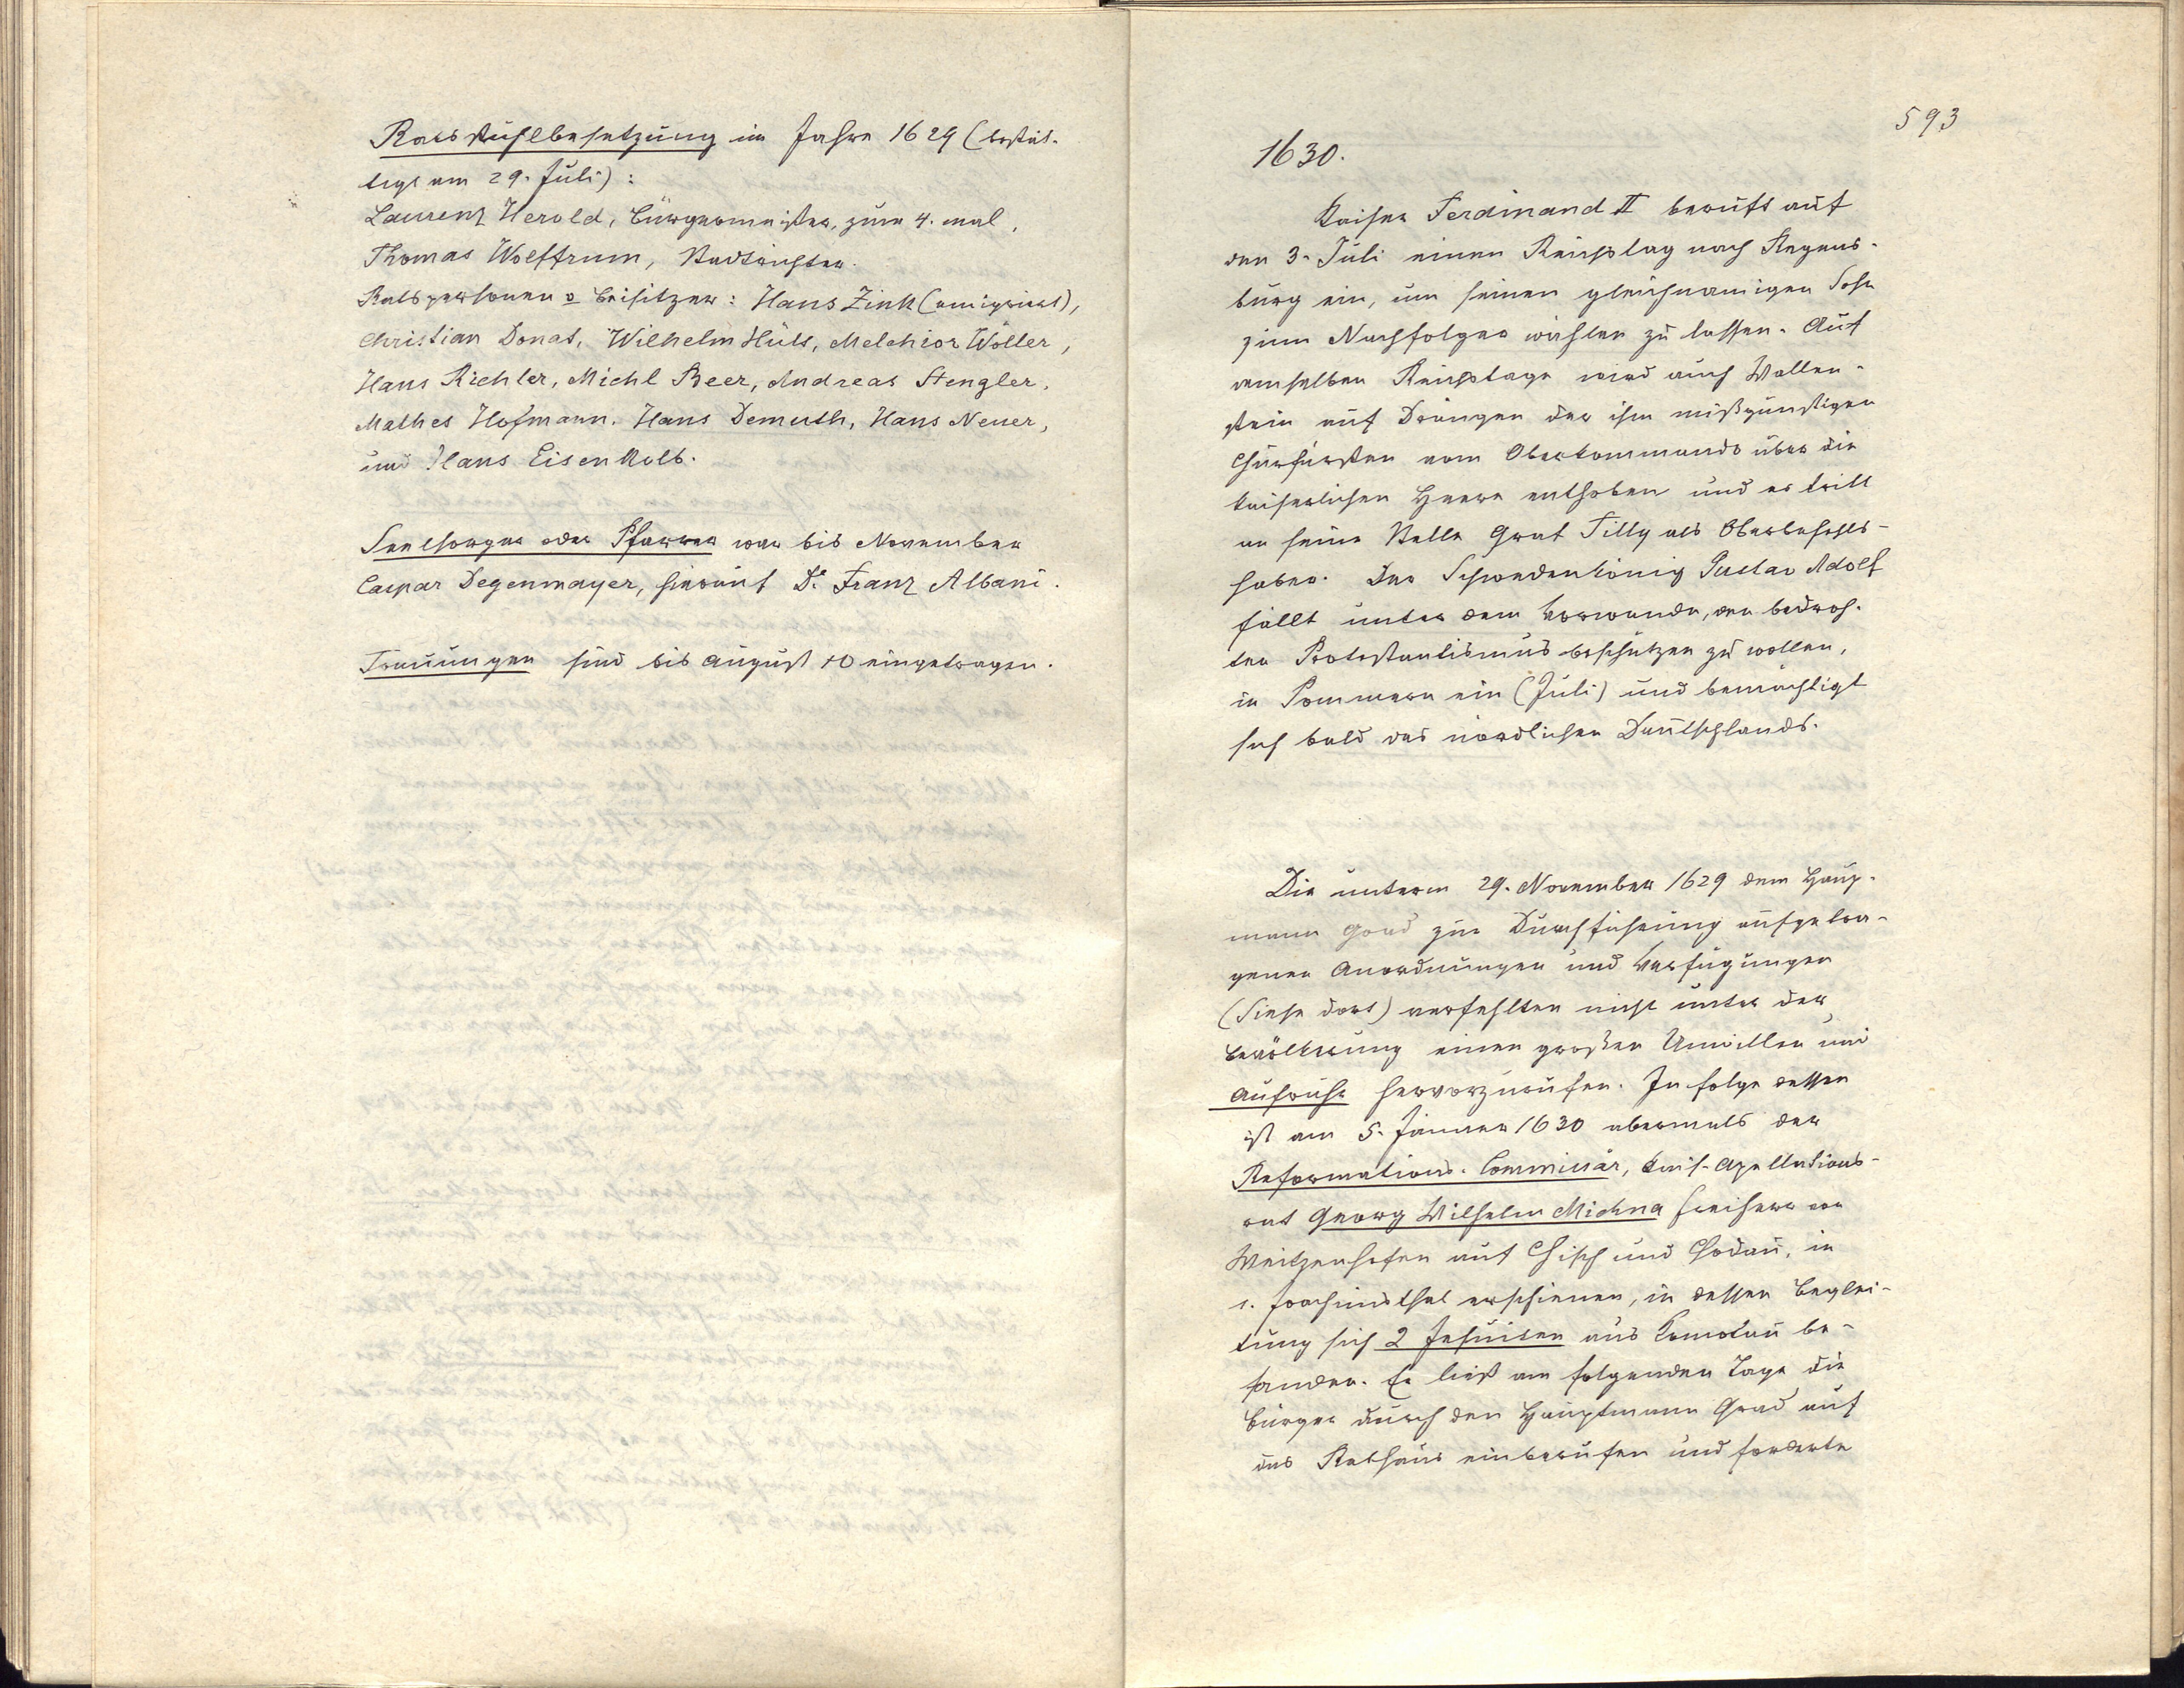 Ratsstuhlbesetzung im Jahre 1629 (bestät-
tigt am 29. Juli):
Laurenz Herold, Bürgermeister, zum 4. mal,
Thomas Wolffrum, Stadtrichter.
Ratspersonen o Beisitzer: Hans Zink (emigriert),
Christian Donat, Wilhelm Hüls, Melchior Wöller,
Hans Richler, Michl Beer, Andreas Stengler,
Mathes Hofmann, Hans Demuth, Hans Neuer,
und Hans Eisenkolb.
Seelsorger oder Pfarrer war bis November
Caspar Degenmayer, hierauf Dr. Franz Albani.
Trauungen sind bis August 10 eingetragen.
593
1630.
Kaiser Ferdinand II beruft auf
den 3. Juli einen Reichstag nach Regens-
burg ein, um seinen gleichnamigen Sohn
zum Nachfolger wählen zu lassen. Auf
demselben Reichstage wird auch Wallen-
stein auf Drängen der ihm mißgünstigen
Churfürsten vom Oberkommando über die
kaiserlichen Heere enthoben und es tritt
an seine Stelle Graf Tilly als Oberbefehls-
haber. Der Schwedenkönig Gustav Adolf
fällt unter dem Vorwande, den bedroh-
ten Protestantismus beschützen zu wollen,
in Pommern ein (Juli) und bemächtigt
sich bald des nördlichen Deutschlands.
Die unterm 29. November 1629 dem Haup-
mann Grad zur Durchführung aufgetra-
genen Anordnungen und Verfügungen
(Siehe dort) verfehlten nicht unter der
Bevölkerung einen großen Unwillen und
Aufruhr hervorzurufen. In folge dessen
ist am 5. Jänner 1630 abermals der
Reformations-Commissär, kais. Apellations-
rat Georg Wilhelm Michna Freiherr von
Weitzenhofen auf Chisch und Chodau, in
s. Joachimsthal erschienen, in dessen Beglei-
tung sich 2 Jesuiten aus Komotau be-
fanden. Er ließ am folgenden Tage die
Bürger durch den Hauptmann Grad auf
das Rathaus einberufen und forderte